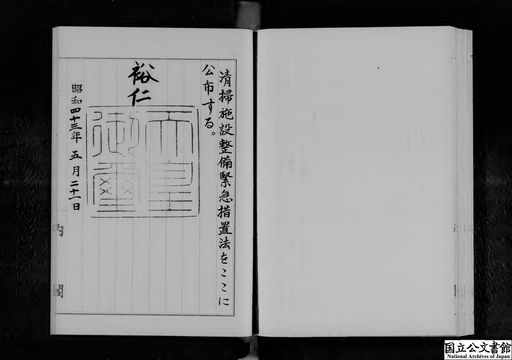 清掃施設整備緊急措置法をここに
公布する。
裕仁
天皇
御璽
昭和四十三年五月二十一日
内閣
国立公文書館
National Archives of Japan